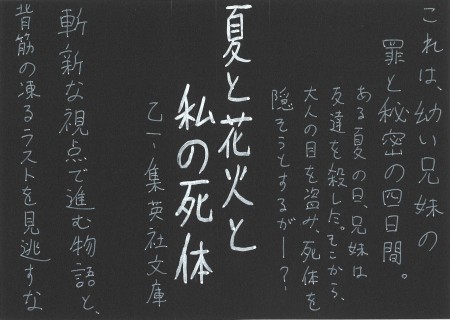 これは、幼い兄妹の
罪と秘密の四日間。
ある夏の日、兄妹は
友達を殺した。そこから、
大人の目を盗み、死体を
隠そうとするが―?
夏と花火と
私の死体
乙一 集英社文庫
斬新な視点で進む物語と、
背筋の凍るラストを見逃すな